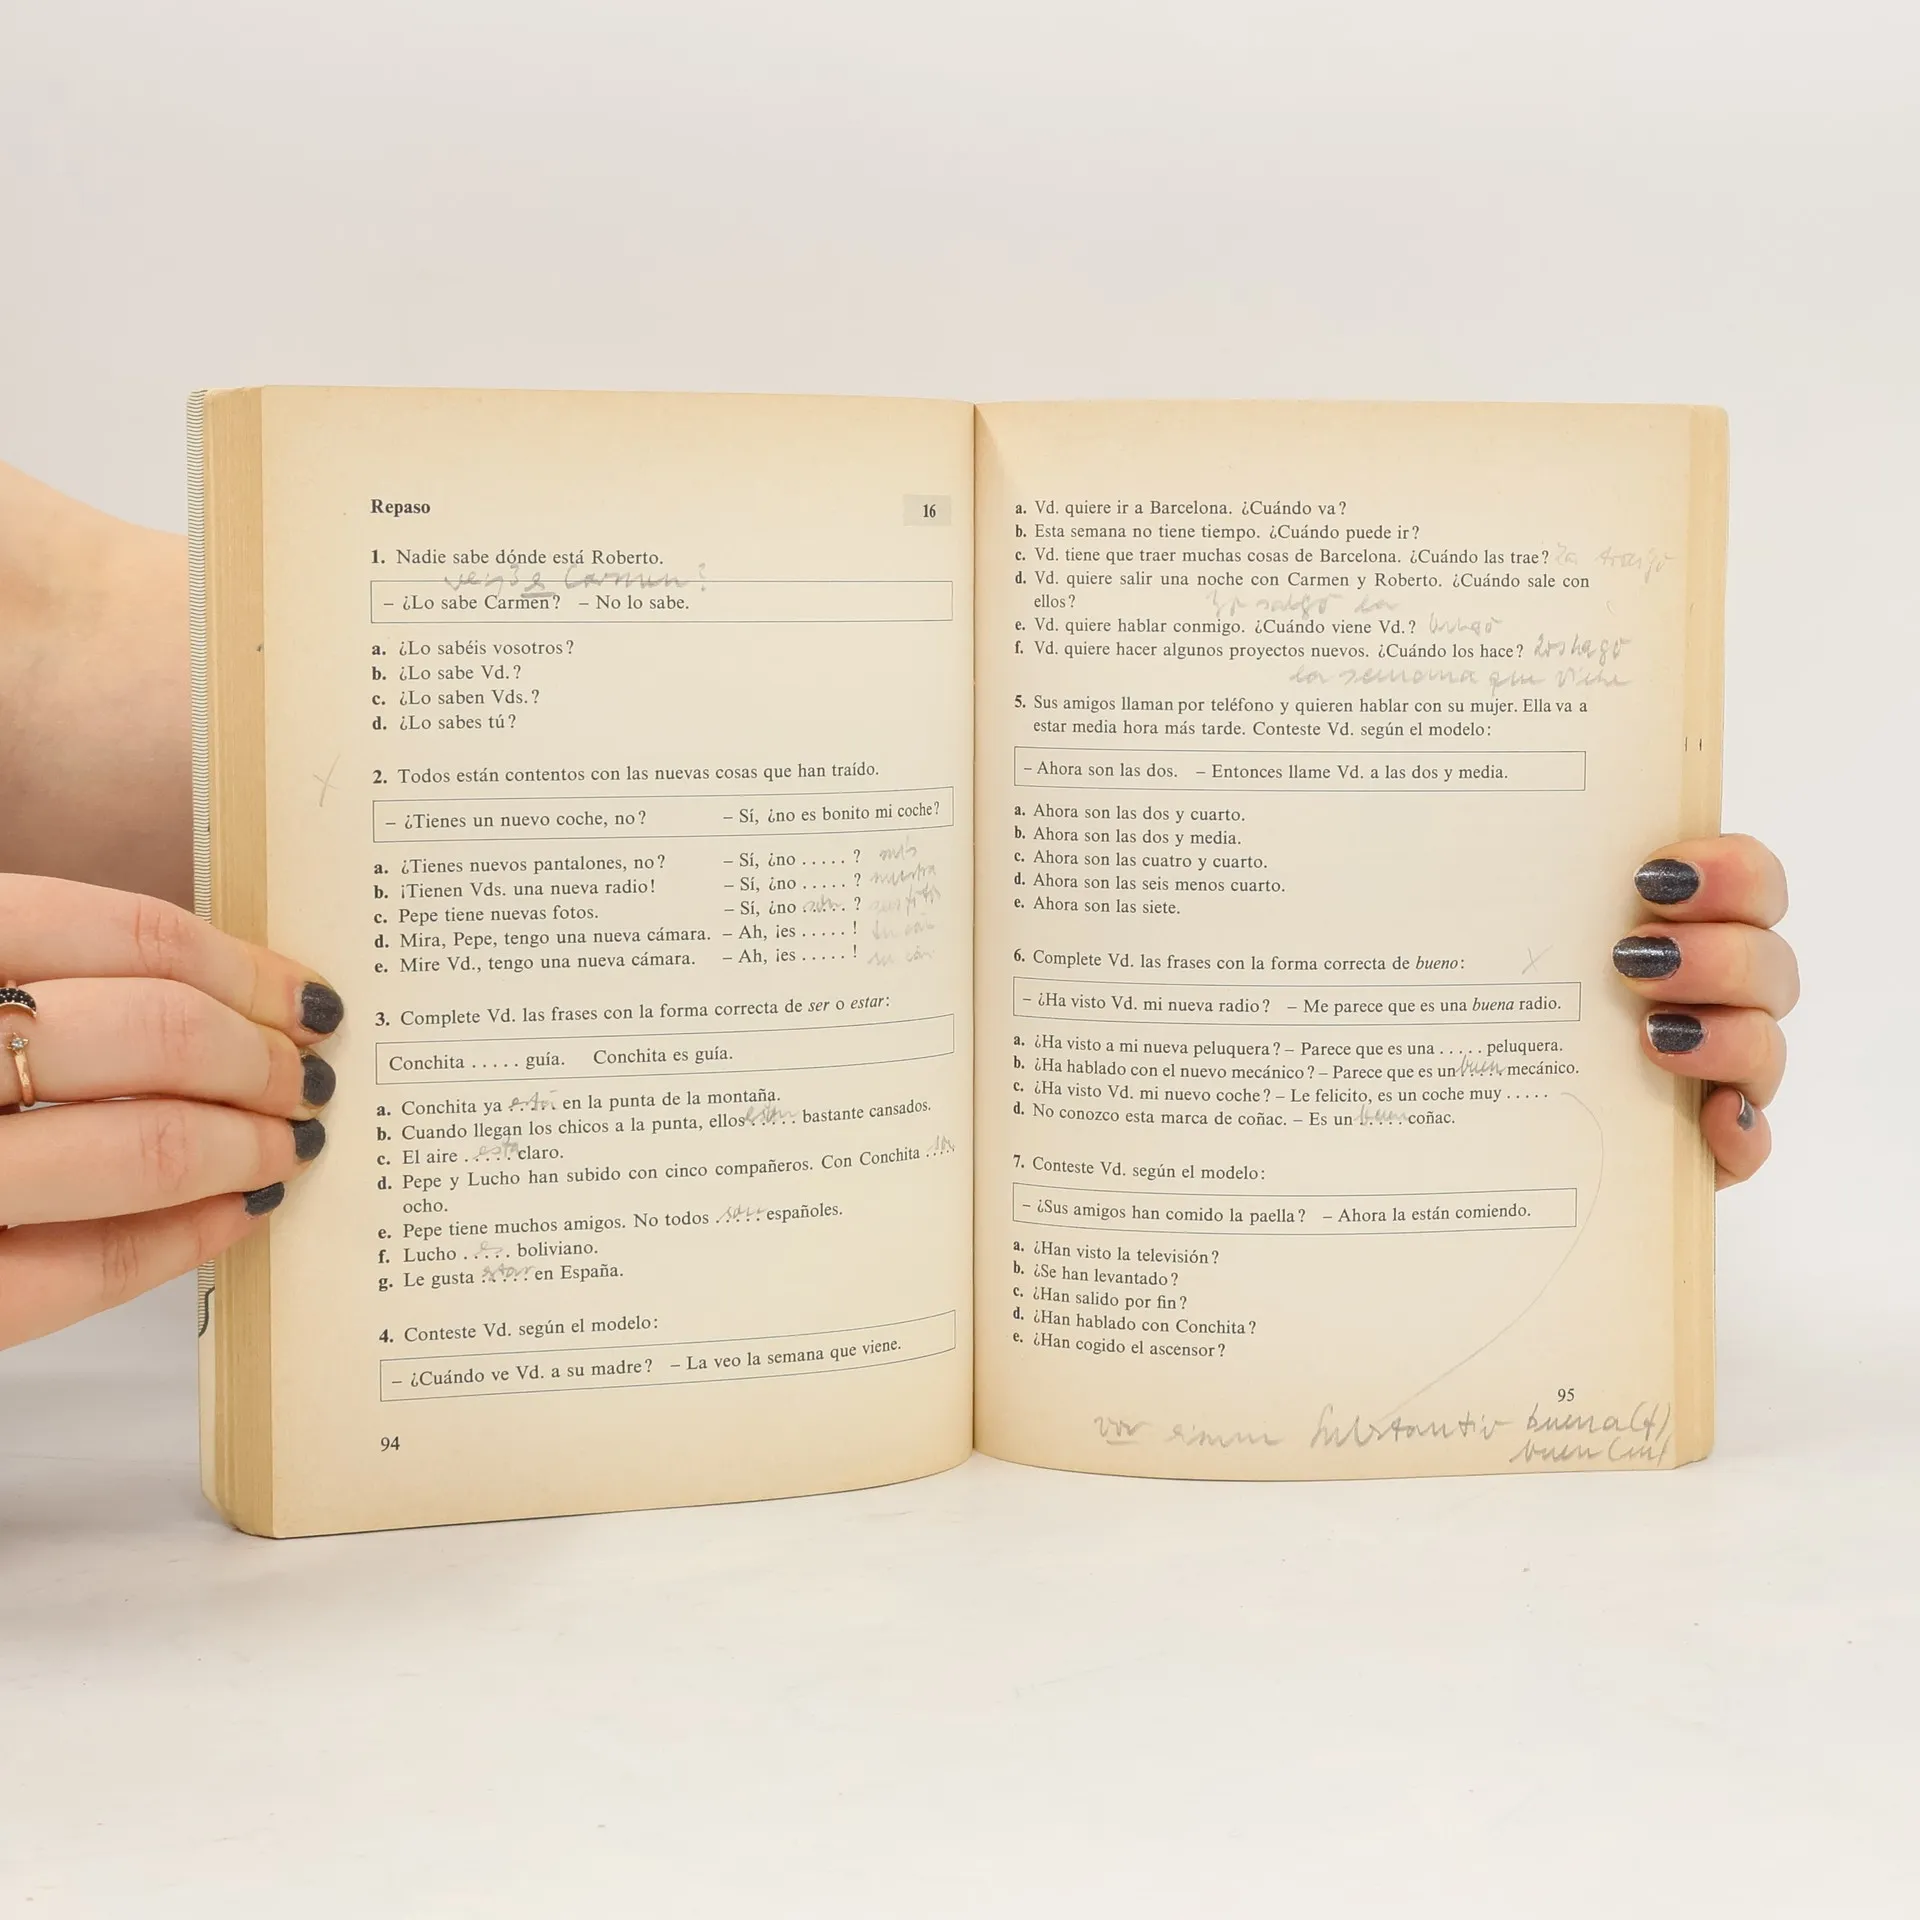 Repaso
16
1. Nadie sabe dónde está Roberto.
Carmen?
– ¿Lo sabe Carmen? – No lo sabe.
a. ¿Lo sabéis vosotros?
b. ¿Lo sabe Vd.?
c. ¿Lo saben Vds.?
d. ¿Lo sabes tú?
2. Todos están contentos con las nuevas cosas que han traído.
– ¿Tienes un nuevo coche, no? – Sí, ¿no es bonito mi coche?
a. ¿Tienes nuevos pantalones, no? – Sí, ¿no ..... ? mis
b. ¡Tienen Vds. una nueva radio! – Sí, ¿no ..... ? nuestra
c. Pepe tiene nuevas fotos. – Sí, ¿no son ..... ? sus fotos
d. Mira, Pepe, tengo una nueva cámara. – Ah, ¡es ..... !
e. Mire Vd., tengo una nueva cámara. – Ah, ¡es ..... ! su
3. Complete Vd. las frases con la forma correcta de ser o estar:
Conchita ..... guía. Conchita es guía.
a. Conchita ya está en la punta de la montaña.
b. Cuando llegan los chicos a la punta, ellos están bastante cansados.
c. El aire está claro.
d. Pepe y Lucho han subido con cinco compañeros. Con Conchita son
ocho.
e. Pepe tiene muchos amigos. No todos son españoles.
f. Lucho es boliviano.
g. Le gusta estar en España.
4. Conteste Vd. según el modelo:
– ¿Cuándo ve Vd. a su madre? – La veo la semana que viene.
94
a. Vd. quiere ir a Barcelona. ¿Cuándo va?
b. Esta semana no tiene tiempo. ¿Cuándo puede ir?
c. Vd. tiene que traer muchas cosas de Barcelona. ¿Cuándo las trae? traigo
d. Vd. quiere salir una noche con Carmen y Roberto. ¿Cuándo sale con
ellos? Yo salgo la
e. Vd. quiere hablar conmigo. ¿Cuándo viene Vd.? vengo
f. Vd. quiere hacer algunos proyectos nuevos. ¿Cuándo los hace? los hago
la semana que viene
5. Sus amigos llaman por teléfono y quieren hablar con su mujer. Ella va a
estar media hora más tarde. Conteste Vd. según el modelo:
– Ahora son las dos. – Entonces llame Vd. a las dos y media.
a. Ahora son las dos y cuarto.
b. Ahora son las dos y media.
c. Ahora son las cuatro y cuarto.
d. Ahora son las seis menos cuarto.
e. Ahora son las siete.
6. Complete Vd. las frases con la forma correcta de bueno:
– ¿Ha visto Vd. mi nueva radio? – Me parece que es una buena radio.
a. ¿Ha visto a mi nueva peluquera? – Parece que es una ..... peluquera.
b. ¿Ha hablado con el nuevo mecánico? – Parece que es un buen mecánico.
c. ¿Ha visto Vd. mi nuevo coche? – Le felicito, es un coche muy .....
d. No conozco esta marca de coñac. – Es un buen coñac.
7. Conteste Vd. según el modelo:
– ¿Sus amigos han comido la paella? – Ahora la están comiendo.
a. ¿Han visto la televisión?
b. ¿Se han levantado?
c. ¿Han salido por fin?
d. ¿Han hablado con Conchita?
e. ¿Han cogido el ascensor?
95
vor einem Substantiv buena (f)
buen (m)